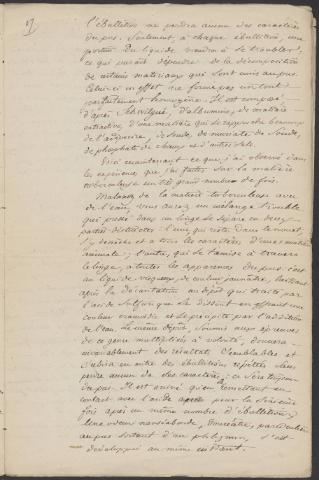 l'ébullition ne perdra aucun des caractères
du pus. Seulement, à chaque ébullition, une
portion du liquide viendra à se troubler,
ce qui parait dépendre de la décomposition
de certains matériaux qui sont unis au pus.
Celui-ci en effet ne forme pas un tout
parfaitement homogène. Il est composé,
d'après Schwilgué, d'albumine, de matière
extractive, d'une matière qui se rapproche beaucoup
de l'adipocire, de soude, de muriate de soude,
de phosphate de chaux et d'autres sels.
Voici maintenant ce que j'ai observé dans
les expériences que j'ai faites sur la matière
tuberculeuse un très grand nombre de fois.
Malaxez de la matière tuberculeuse avec
de l'eau, vous aurez un mélange trouble
qui pressé dans un linge se sépare en deux
parties distinctes: l'une, qui reste dans le nouet,
y demeure et a tous les caractères d'une matière
animale; l'autre, qui se tamise à travers
le linge, a toutes les apparences du pus: c'est
un liquide visqueux, de couleur jaunâtre, laissant
après la décantation un dépôt qui traité par
l'acide sulfurique se dissout en offrant une
couleur et se précipite par l'addition
de l'eau. Le même dépôt, soumis aux épreuves
de ce genre multipliées à volonté, donnera
invariablement des résultats semblables et
subira un nombre d'ébullitions répétées sans
perdre aucun de ses caractères; ce sera toujours
du pus. Il est avéré qu'en remettant en
contact avec l'acide après pour la troisième
fois après un même nombre d'ébullitions,
une odeur nauséabonde, particulière
au pus sortant d'un phlegmon, s'est
développée au même instant.